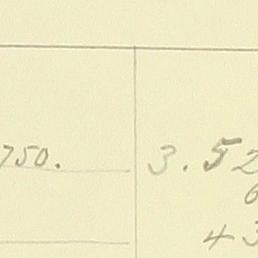 750. 3.52
6
43